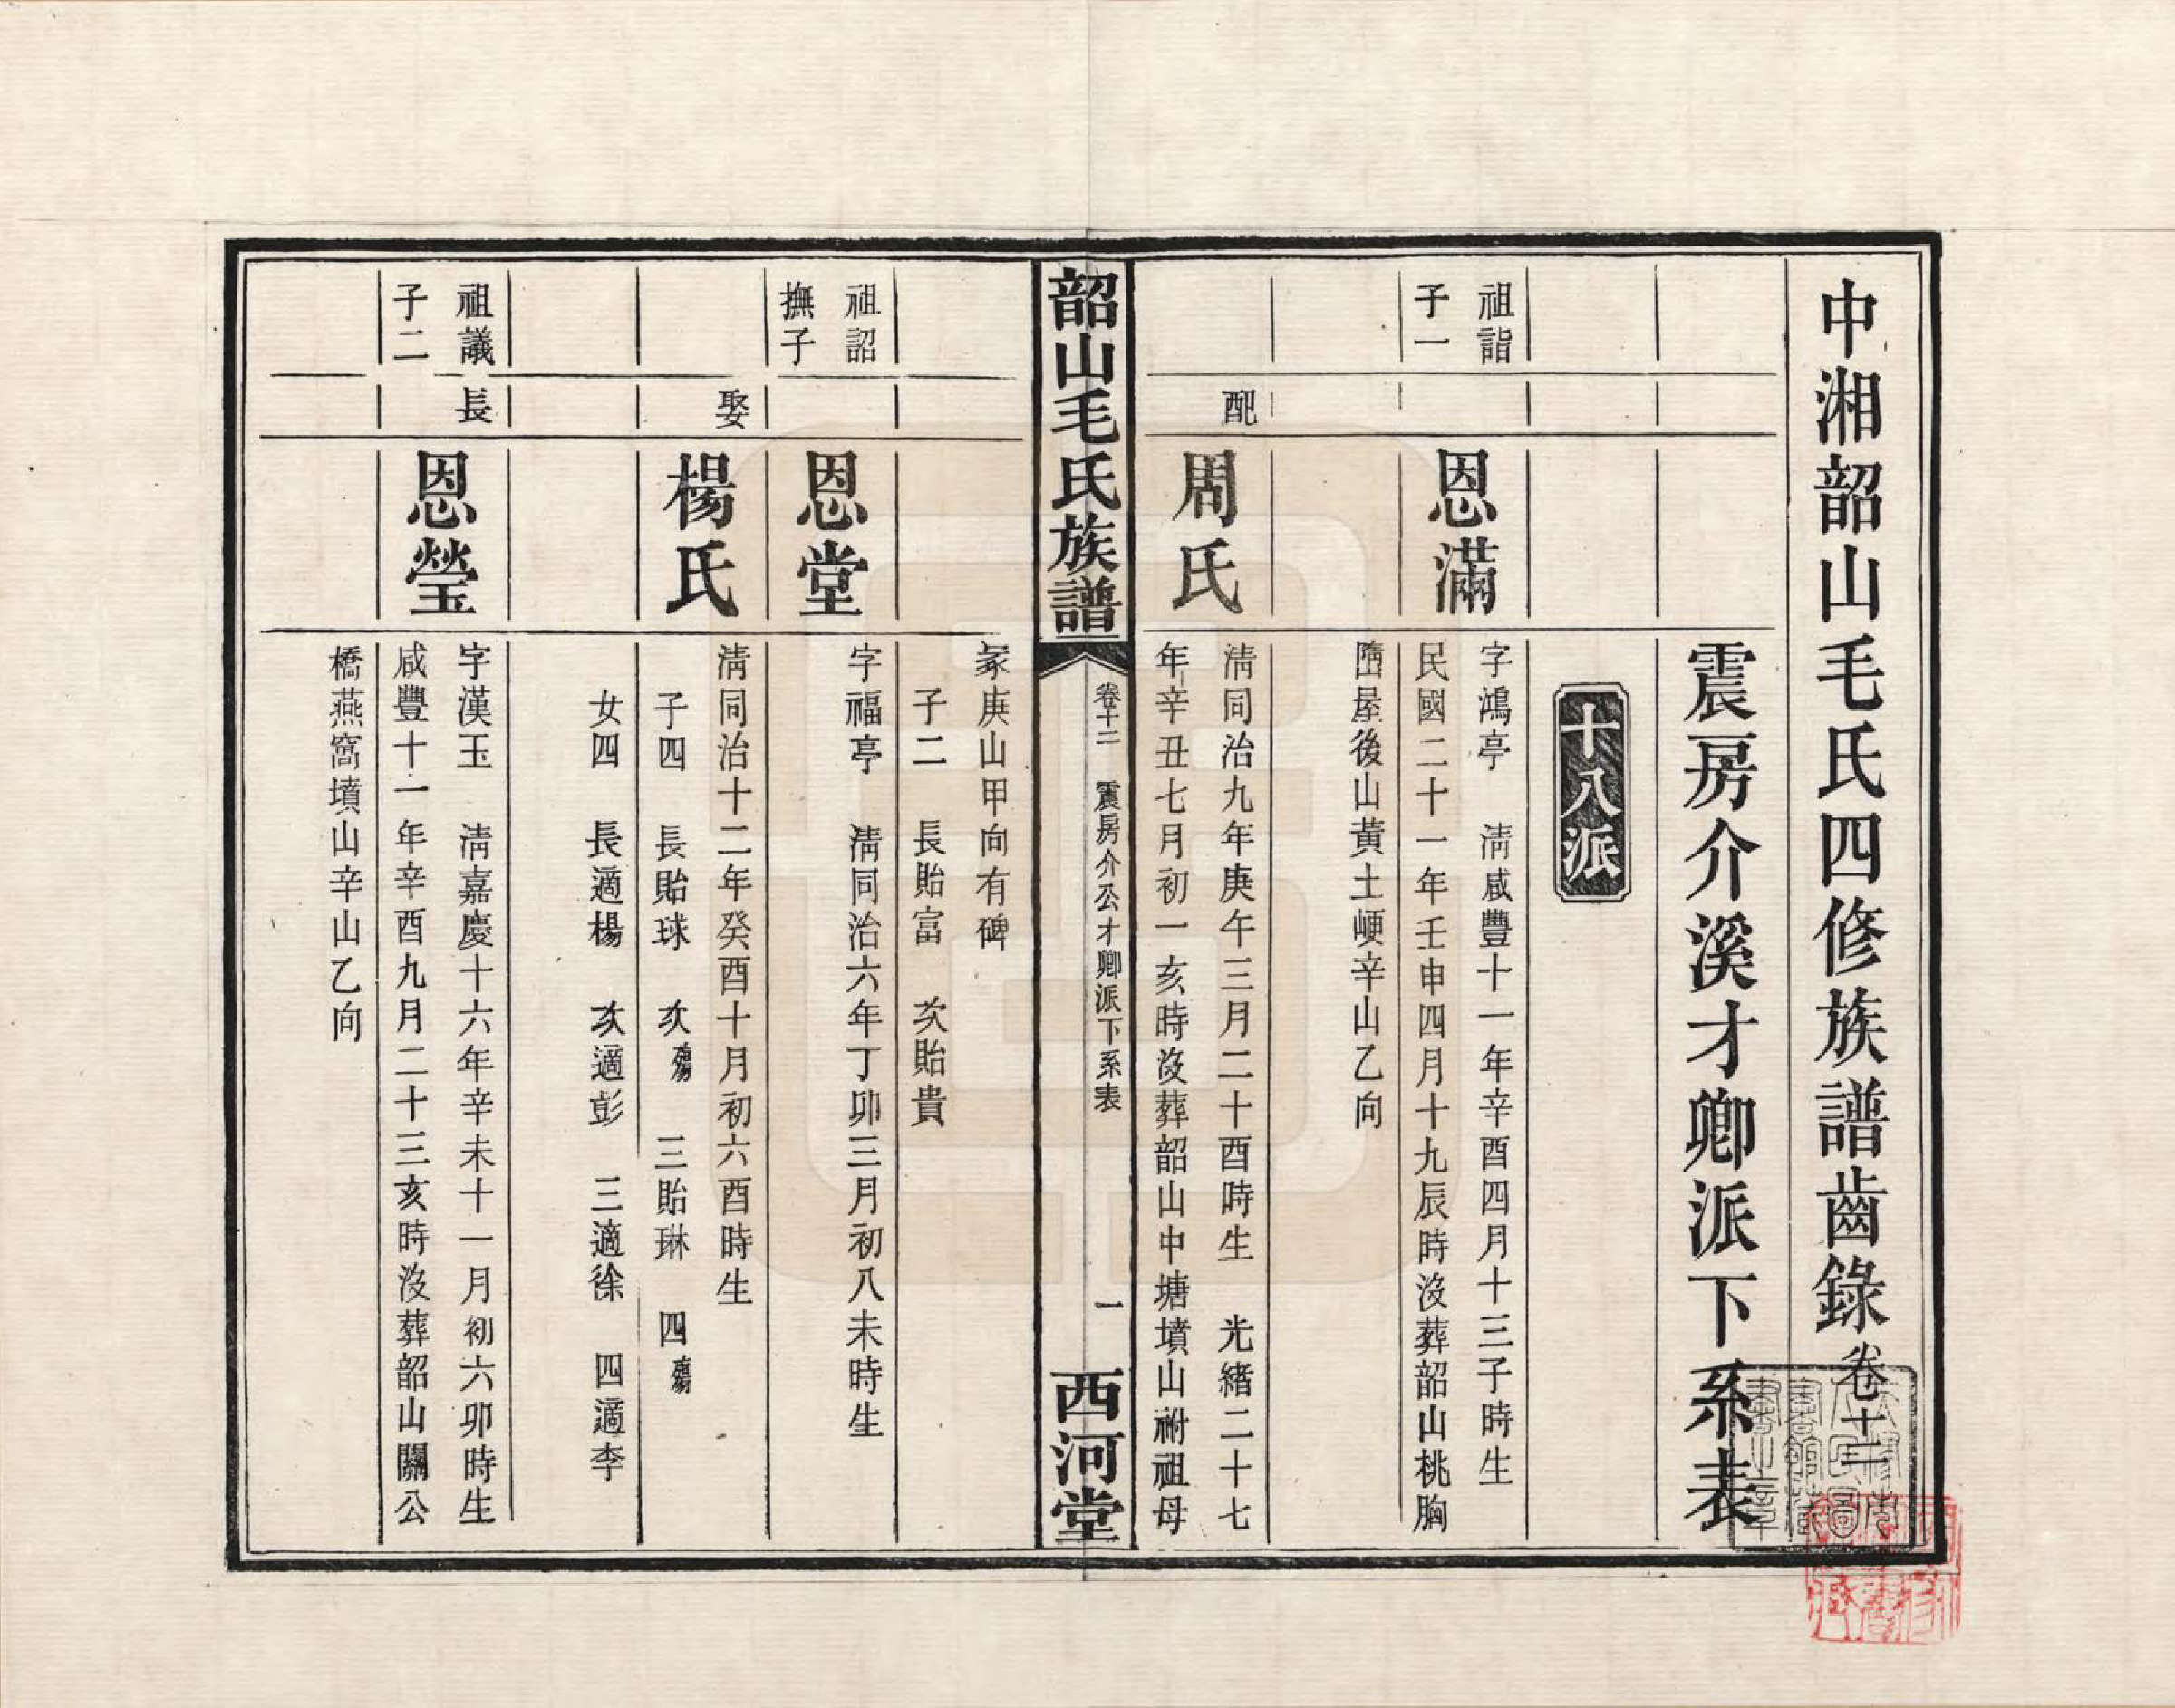 中湘韶山毛氏四修族譜齒錄卷十二
震房介溪才卿派下系表
十八派
祖詣
子一
恩滿
字鴻亭 淸咸豐十一年辛酉四月十三子時生
民國二十一年壬申四月十九辰時沒葬韶山桃胸
屋後山黃土㟍辛山乙向
配
周氏
淸同治九年庚午三月二十酉時生 光緒二十七
年辛丑七月初一亥時沒葬韶山中塘墳山祔祖母
韶山毛氏族譜
卷十二 震房介公才卿派下系表
一
西河堂
冢庚山甲向有碑
子二 長貽富 次貽貴
祖詔
撫子
恩堂
字福亭 淸同治六年丁卯三月初八未時生
娶
楊氏
淸同治十二年癸酉十月初六酉時生
子四 長貽球 次殤 三貽琳 四殤
女四 長適楊 次適彭 三適徐 四適李
祖議
子二
長
恩瑩
字漢玉 淸嘉慶十六年辛未十一月初六卯時生
咸豐十一年辛酉九月二十三亥時沒葬韶山關公
橋燕窩墳山辛山乙向